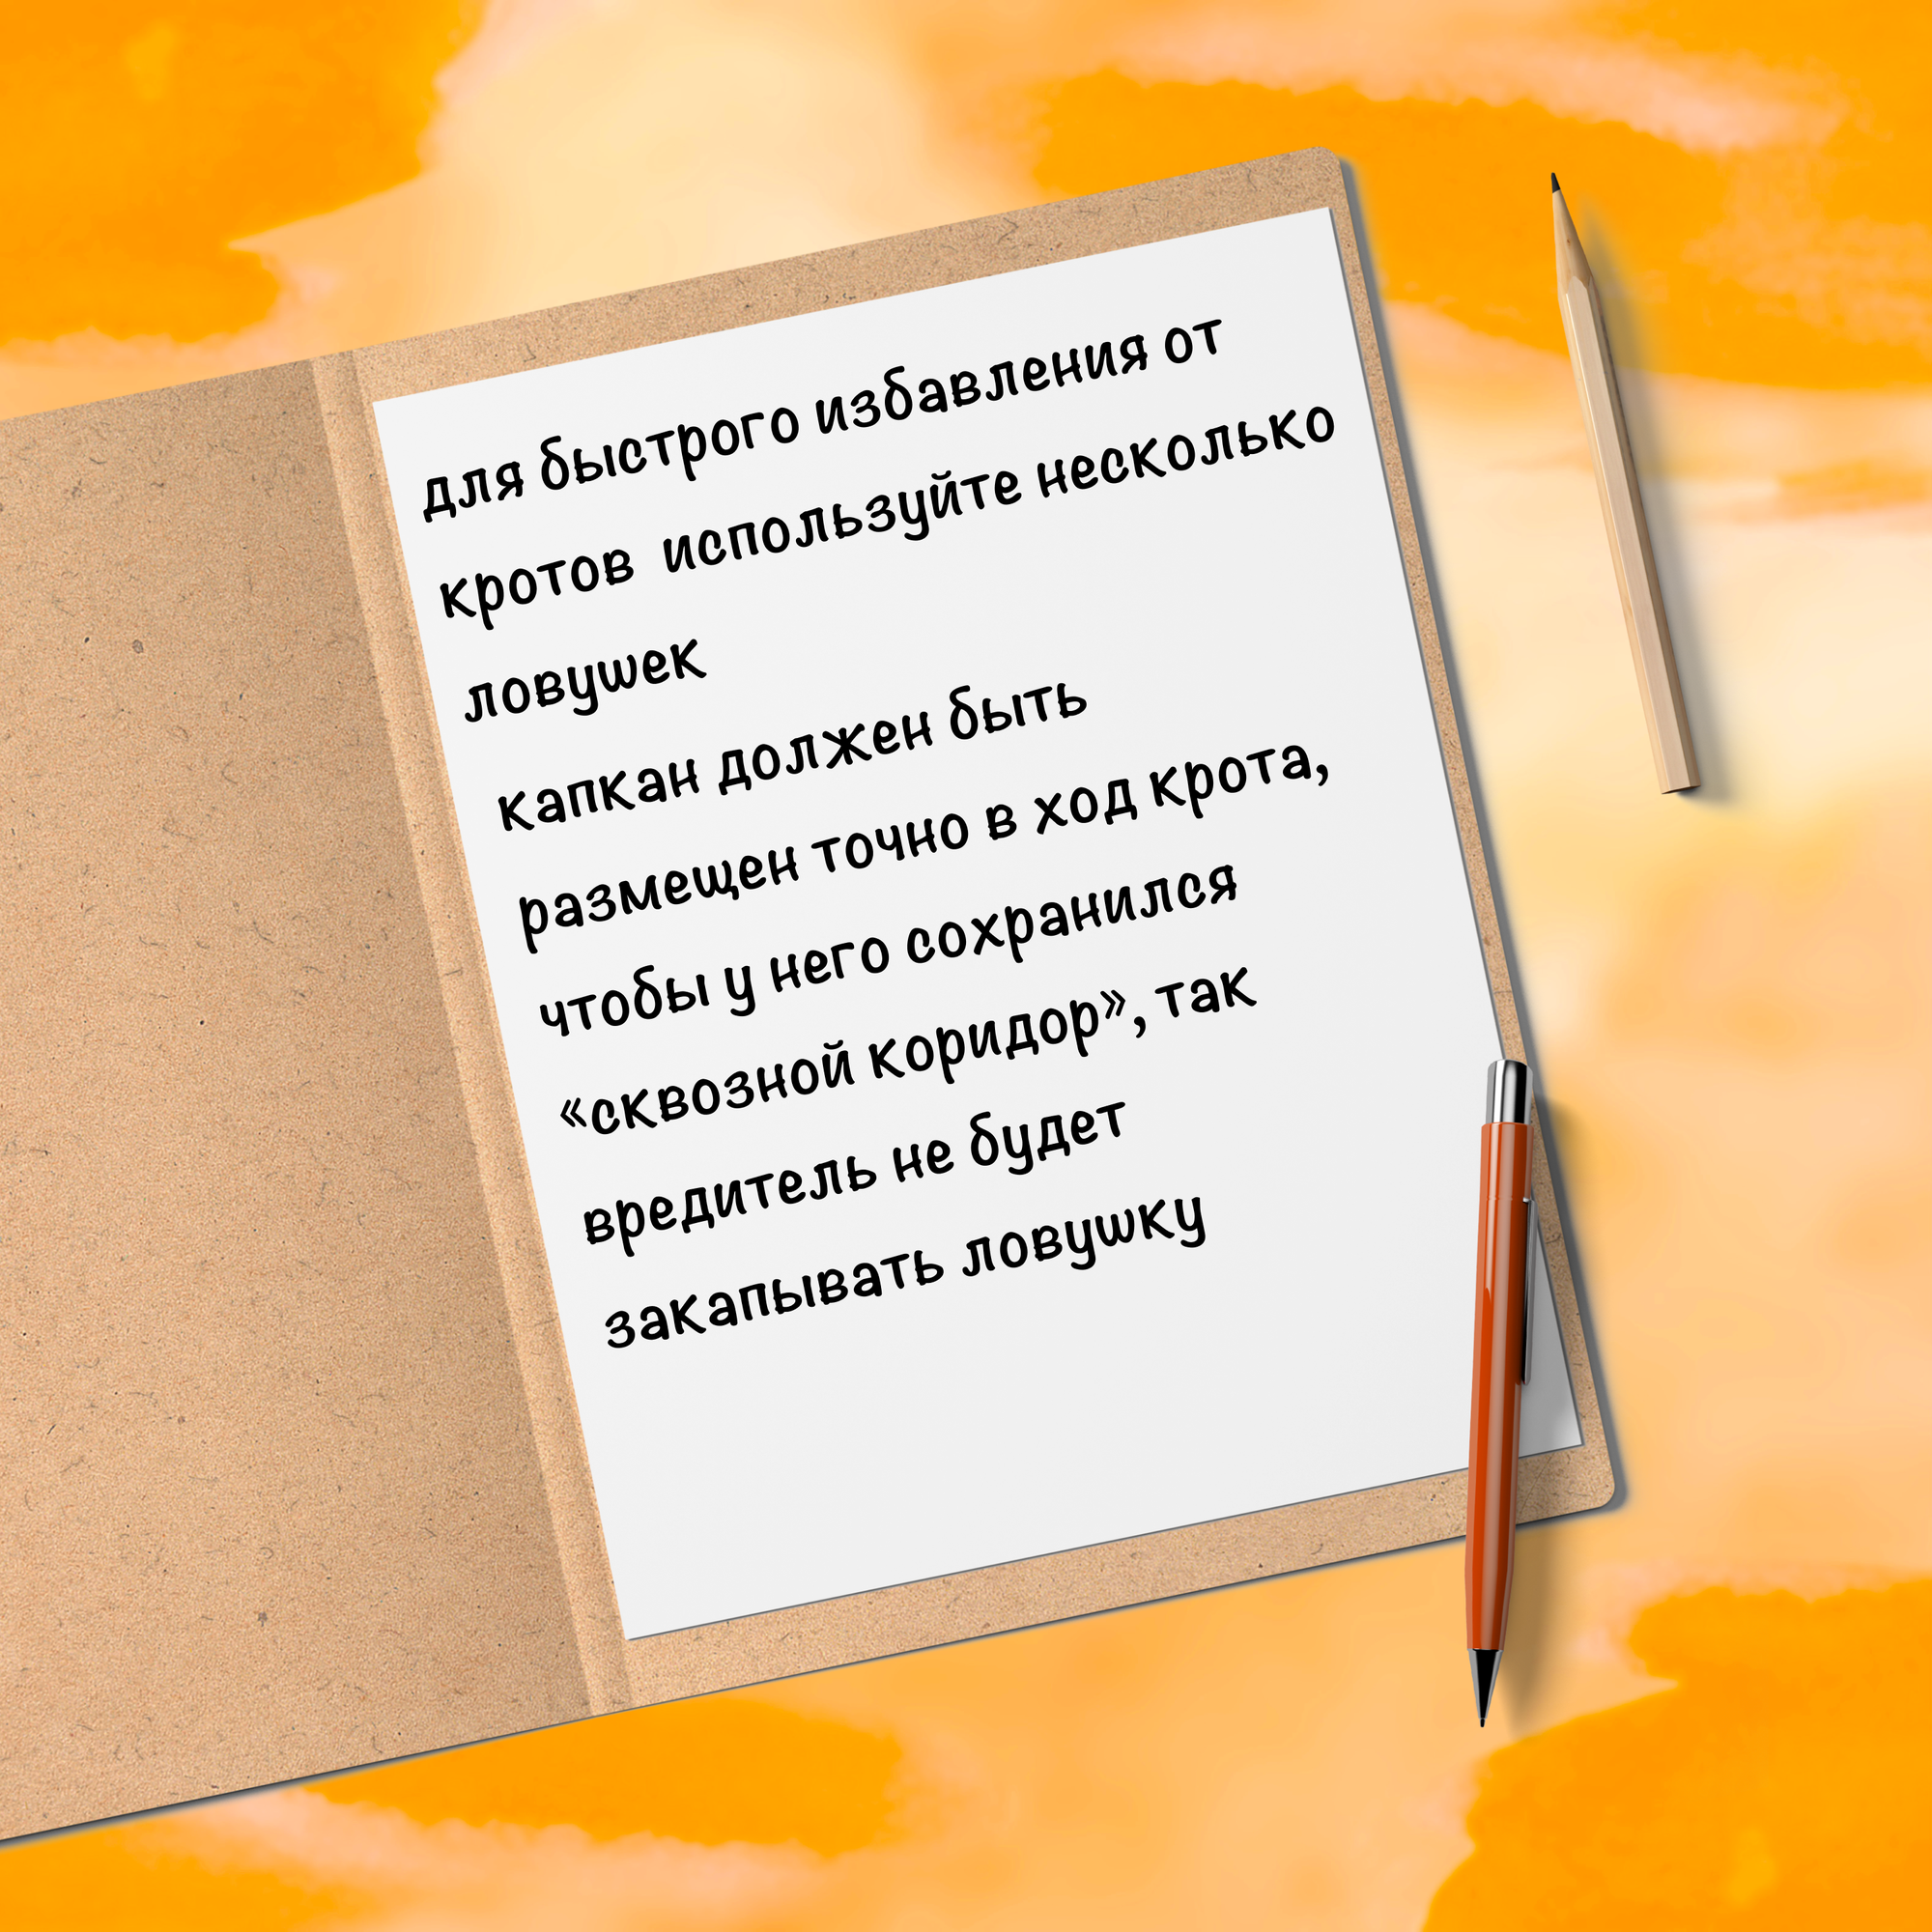 для быстрого избавления от
кротов используйте несколько
ловушек
капкан должен быть
размещен точно в ход крота,
чтобы у него сохранился
«сквозной коридор», так
вредитель не будет
закапывать ловушку